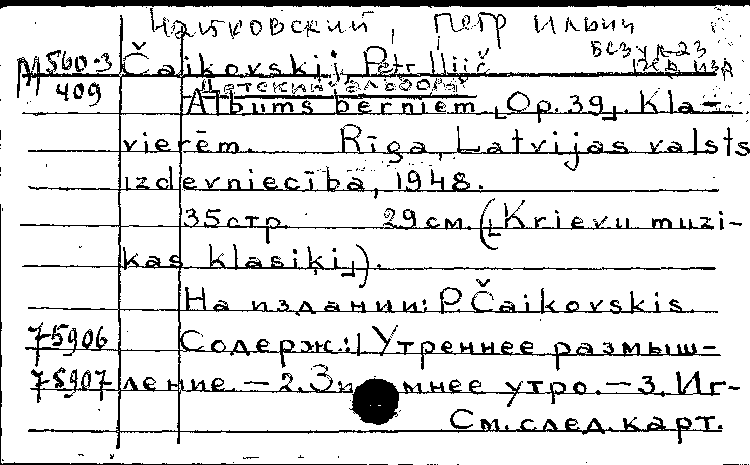 Чайковский, Петр Ильич
М 560-3 Čaikovskij, Petr Iljič
409 Детский альбом
Albums bērniem [Op. 39]. Kla-
vierēm. Rīga, Latvijas valsts
izdevniecība, 1948.
35 стр. 29 см. ([Krievu muzi-
kas klasiķi]).
На издании: P. Čaikovskis.
75906 Содерж.: 1. Утреннее размыш-
75907 ление. — 2. Зимнее утро. — 3. Иг-
См. след. карт.